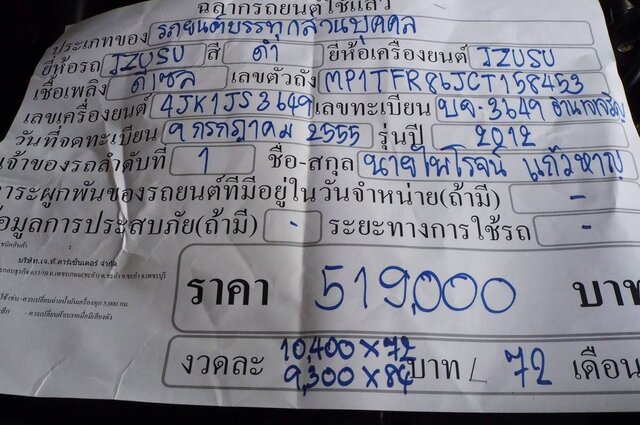 ฉลากรถยนต์ใช้แล้ว
ประเภทของ รถยนต์บรรทุกส่วนบุคคล
ยี่ห้อรถ IZUSU สี ดำ ยี่ห้อเครื่องยนต์ IZUSU
เชื้อเพลิง ดีเซล เลขตัวถัง MP1TFR86JCT158453
เลขเครื่องยนต์ 4JK1JS3649 เลขทะเบียน บจ-3649 อำนาจเจริญ
วันที่จดทะเบียน 9 กรกฎาคม 2555 รุ่นปี 2012
เจ้าของรถลำดับที่ 1 ชื่อ-สกุล นายไพโรจน์ แก้วหาญ
ภาระผูกพันของรถยนต์ที่มีอยู่ในวันจำหน่าย(ถ้ามี) -
ข้อมูลการประสบภัย(ถ้ามี) - ระยะทางการใช้รถ -
บริษัท เจ.ที.คาร์เซ็นเตอร์ จำกัด
ราคา 519,000 บาท
ใช้ เช่น -ควรเปลี่ยนถ่ายน้ำมันเครื่องทุก 5,000 กม.
-ควรเปลี่ยนผ้าเบรคเมื่อมีเสียงดัง
งวดละ 10,400 x 72
9,300 x 84 บาท / 72 เดือน